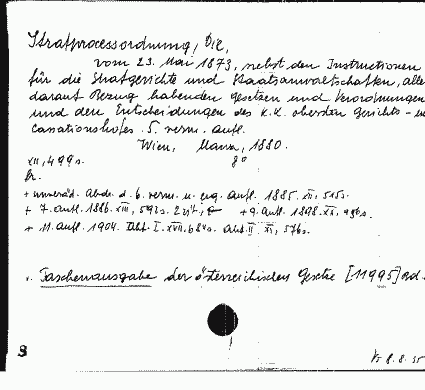 Strafprocessordnung, Die,
vom 23. Mai 1873, nebst den Instructionen
für die Strafgerichte und Staatsanwaltschaften, allen
darauf Bezug habenden Gesetzen und Verordnungen
und den Entscheidungen des k.k. obersten Gerichts- u
Cassationshofes. 5. verm. Aufl.
Wien, Manz, 1880.
XII, 499 s. 8°
br.
+ unveräd. Abdr. d. 6. verm. u. erg. Aufl. 1885. XII, 515 s.
+ 7. Aufl. 1886. XIII, 592 s. + 9. Aufl. 1898. XX, 496 s.
+ 11. Aufl. 1904. Abt. I. XVII. 684 s. Abt. II. XI, 576 s.
v. Taschenausgabe der österreichischen Gesetze [11995] Bd.
8. 8. 35